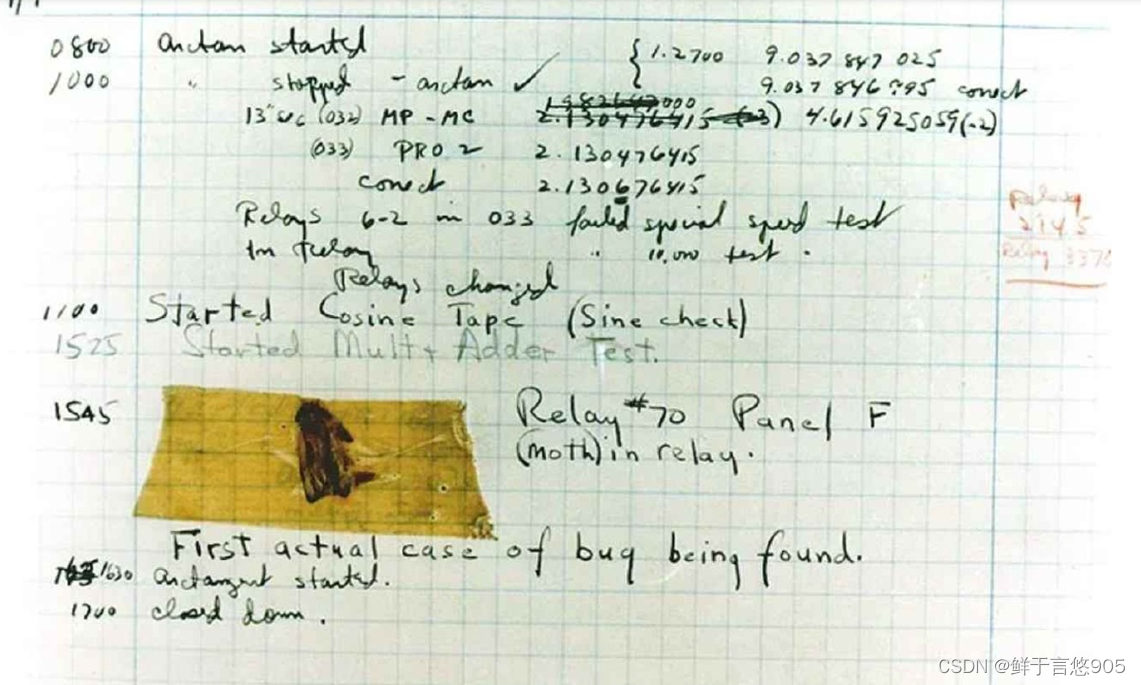 0800 arctan started { 1.2700 9.037 847 025
1000 " stopped - arctan ✓ 9.037 846 995 correct
13" uc (032) MP - MC 2.130476415 (-3) 4.615925059(-2)
(033) PRO 2 2.130476415
correct 2.130676415
Relays 6-2 in 033 failed special speed test
In Relay " 10.000 test .
Relays changed
Relay
2145
Relay 3370
1100 Started Cosine Tape (Sine check)
1525 Started Mult + Adder Test.
1545 Relay #70 Panel F
(moth) in relay.
First actual case of bug being found.
1630 arctangent started.
1700 closed down.
CSDN @鲜于言悠905